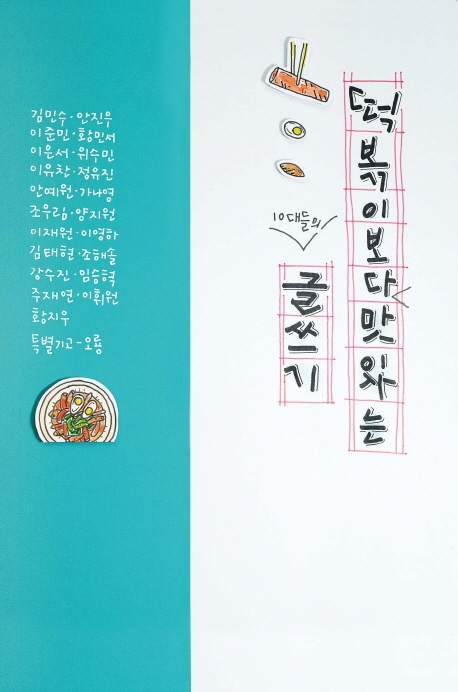 떡볶이보다맛있는
10대들의
글쓰기
김민수·안진우
이준민·황민서
이은서·위수민
이유찬·정유진
안예원·가나영
조우림·양지원
이재원·이영하
김태현·조해솔
강수진·임승혁
주재연·이휘원
황지우
특별기고-오룡